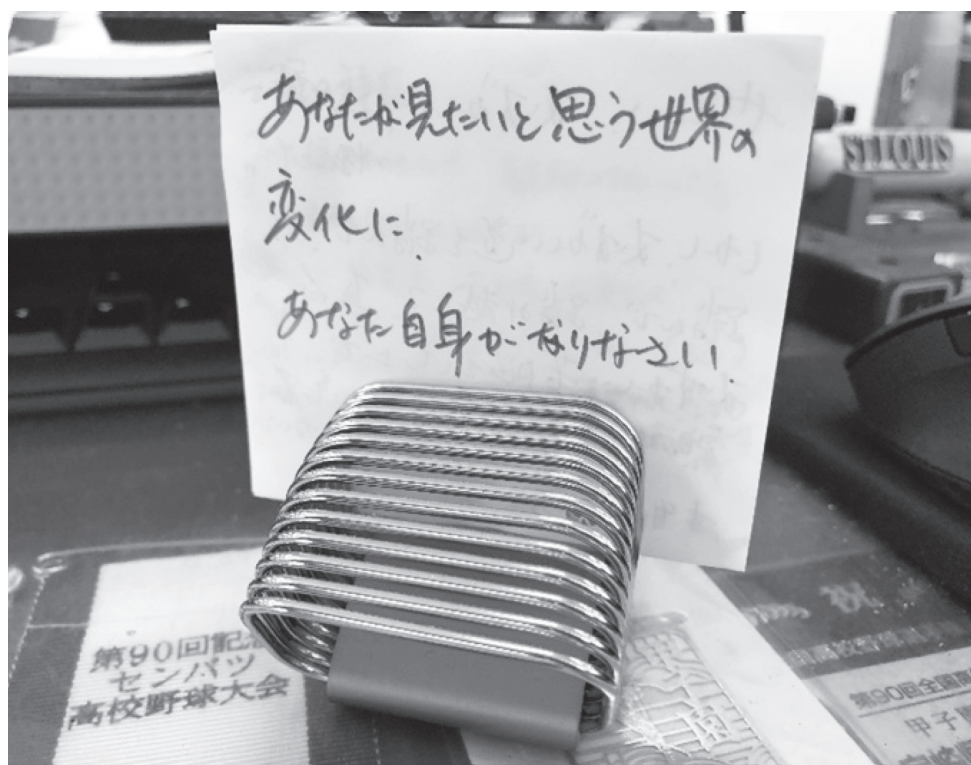 あなたが見たいと思う世界の
変化に、
あなた自身がなりなさい.
ST.LOUIS
第90回記念
センバツ
高校野球大会
第90回全国高
甲子園